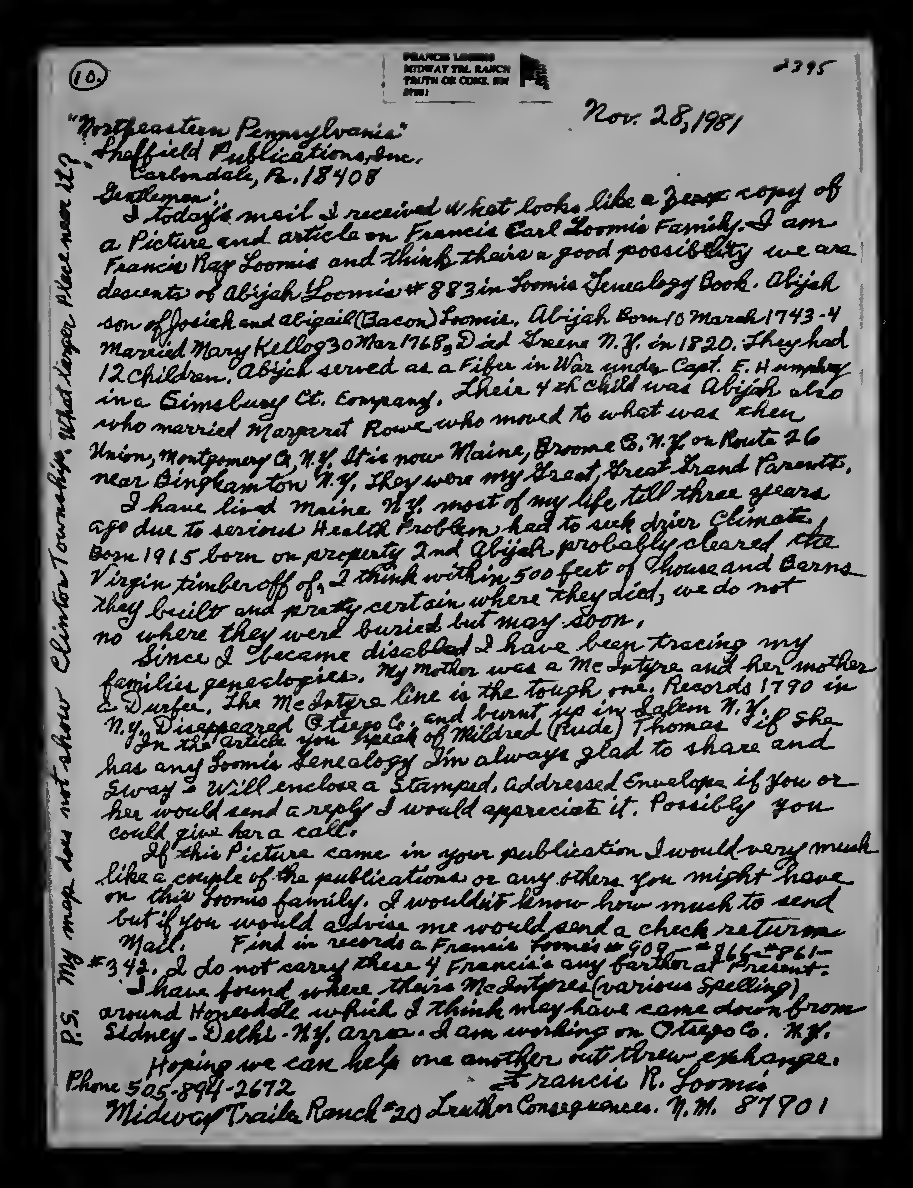 10.
FRANCIS LOOMIS
MIDWAY TRL. RANCH
TRUTH OR CONS. NM
87901
2395
Nov. 28, 1981
"Northeastern Pennsylvania"
Sheffield Publications, Inc.
Carbondale, Pa. 18408
Gentlemen:
I today's mail I received what looks like a Zerox copy of
a Picture and article on Francis Earl Loomis Family. I am
Francis Ray Loomis and think theirs a good possibility we are
descents of Abijah Loomis # 883 in Loomis Genealogy Book. Abijah
son of Josiah and Abigail (Bacon) Loomis. Abijah Born 10 March 1743-4
Married Mary Kellog 30 Mar 1768, Died Greene N.Y. in 1820. They had
12 Children. Abijah served as a Fifer in War under Capt. E. Humphry
in a Simsbury Ct. Company. Their 4th child was Abijah also
who married Margaret Rowe who moved to what was then
Union, Montgomery Co, N.Y. It is now Maine, Broome Co. N.Y. on Route 26
near Binghamton N.Y. They were my Great, Great Grand Parents.
I have lived Maine N.Y. most of my life till three years
ago due to serious Health Problem had to seek drier Climate.
Born 1915 born on property 2nd Abijah probably cleared the
Virgin timber off of, I think within 500 feet of house and Barns
they built and pretty certain where they died, we do not
no where they were buried but may soon.
Since I became disabled I have been tracing my
families genealogies. My Mother was a McIntyre and her mother
a Durfee. The McIntyre line is the tough one. Records 1790 in
N.Y. Disappeared Otsego Co. and burnt up in Salem N.Y.
In the article you speak of Mildred (Rude) Thomas if she
has any Loomis Genealogy I'm always glad to share and
Sway - Will enclose a Stamped, Addressed Envelope if you or
her would send a reply I would appreciate it. Possibly you
could give her a call.
If this Picture came in your publication I would very much
like a couple of the publications or any others you might have
on this Loomis family. I wouldn't know how much to send
but if you would advise me would send a check return
Mail. Find in records a Francis Loomis # 909 - # 866 - # 861 -
# 342. I do not carry these 4 Francis's any farther at Present.
I have found where theirs McIntyres (various Spelling)
around Honesdale which I think may have came down from
Sidney - Delhi - N.Y. area. I am working on Otsego Co. N.Y.
Hoping we can help one another out threw exchange.
Francis R. Loomis
Phone 505-894-2672
Midway Trailer Ranch #20 Truth or Consequences. N.M. 87901
P.S. My map does not show Clinton Township. What larger Place near it?